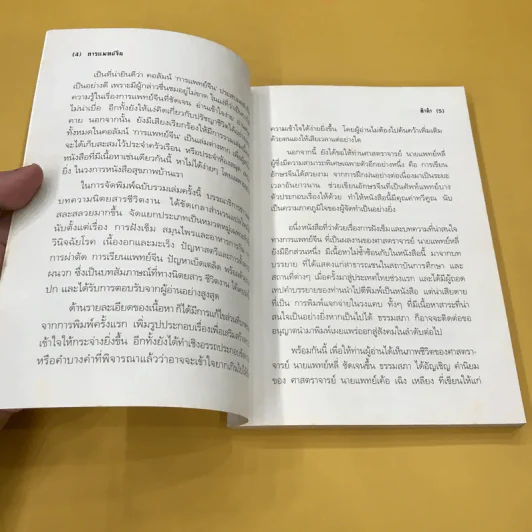 (4) การแพทย์จีน
เป็นที่น่ายินดีว่า คอลัมน์ 'การแพทย์จีน'
เป็นอย่างดี เพราะมีผู้กล่าวชื่นชมอยู่ไม่ขาด
ความรู้ในเรื่องการแพทย์จีนที่ชัดเจน อ่านเข้าใจง่าย
ไม่น่าเบื่อ อีกทั้งยังให้แง่คิดเกี่ยวกับปรัชญาชีวิต
คาย นอกจากนั้น ยังมีเสียงเรียกร้องให้มีการรวม
ทั้งหมดในคอลัมน์ 'การแพทย์จีน' เป็นเล่มต่างหาก
จะได้เก็บสะสมไว้ประจำครัวเรือน หรือประจำห้องสมุด
หนังสือที่มีเนื้อหาเช่นเดียวกันนี้ หาไม่ได้ง่ายๆ
ยิ่ง ในวงการหนังสือสุขภาพบ้านเรา
ในการจัดพิมพ์ฉบับรวมเล่มครั้งนี้ บรรณาธิการ
บทความนิตยสารชีวิตงาม ได้ขัดเกลาสำนวน
สละสลวยมากขึ้น จัดแยกประเภทเป็นหมวดหมู่
นับตั้งแต่เรื่อง การฝังเข็ม สมุนไพรและอาหาร
วินิจฉัยโรค เนื้องอกและมะเร็ง ปัญหาสตรีและ
การผ่าตัด การเรียนแพทย์จีน ปัญหาเบ็ดเตล็ด พร้อม
ผนวก ซึ่งเป็นบทสัมภาษณ์ที่ทางนิตยสาร ชีวิตงาม ได้
ปก และได้รับการตอบรับจากผู้อ่านอย่างสูงสุด
ด้านรายละเอียดของเนื้อหา ก็ได้มีการแก้ไข
จากการพิมพ์ครั้งแรก เพิ่มรูปประกอบเรื่องเพื่อเสริม
เข้าใจให้กระจ่างยิ่งขึ้น อีกทั้งยังได้ทำเชิงอรรถประกอบ
หรือคำบางคำที่พิจารณาแล้วว่าอาจจะเข้าใจยากเกินไป
คำนำ (5)
ความเข้าใจได้ง่ายยิ่งขึ้น โดยผู้อ่านไม่ต้องไปค้นคว้าเพิ่มเติม
ด้วยตนเองให้เสียเวลาแต่อย่างใด
นอกจากนี้ ยังได้ขอให้ศาสตราจารย์ นายแพทย์หลี่
ผู้ซึ่งมีความสามารถพิเศษเฉพาะตัวอีกอย่างหนึ่ง คือ การเขียน
อักษรจีนได้สวยงาม จากการฝึกฝนอย่างต่อเนื่องมาเป็นระยะ
เวลาอันยาวนาน ช่วยเขียนอักษรจีนที่เป็นศัพท์แพทย์บาง
ตัวประกอบเรื่องให้ด้วย ทำให้หนังสือนี้มีคุณค่าทวีคูณ นับ
เป็นความภาคภูมิใจของผู้จัดทำเป็นอย่างยิ่ง
อนึ่งหนังสือที่ว่าด้วยเรื่องการฝังเข็มและบทความที่น่าสนใจ
ทางการแพทย์จีน ที่เป็นผลงานของศาสตราจารย์ นายแพทย์หลี่
ยังมีอีกส่วนหนึ่ง มีเนื้อหาไม่ซ้ำซ้อนกับในหนังสือนี้ มาจากบท
บรรยาย ที่ได้แสดงแก่สาธารณชนในสถาบันการศึกษา และ
สถานที่ต่างๆ เมื่อครั้งมาสู่ประเทศไทยช่วงแรก และได้มีผู้ถอด
เทปคำบรรยายของท่านนำไปตีพิมพ์เป็นหนังสือ แต่น่าเสียดาย
ที่เป็น การพิมพ์แจกจ่ายในวงแคบ ทั้งๆ ที่มีเนื้อหาสาระที่น่า
สนใจเป็นอย่างยิ่งหากเป็นไปได้ ธรรมสภา ก็อาจจะติดต่อขอ
อนุญาตนำมาพิมพ์เผยแพร่ออกสู่สังคมในลำดับต่อไป
พร้อมกันนี้ เพื่อให้ท่านผู้อ่านได้เห็นภาพชีวิตของศาสตรา-
จารย์ นายแพทย์หลี่ ชัดเจนขึ้น ธรรมสภา ได้อัญเชิญ คำนิยม
ของ ศาสตราจารย์ นายแพทย์เค้อ เฉิง เหลียง ที่เขียนให้แก่